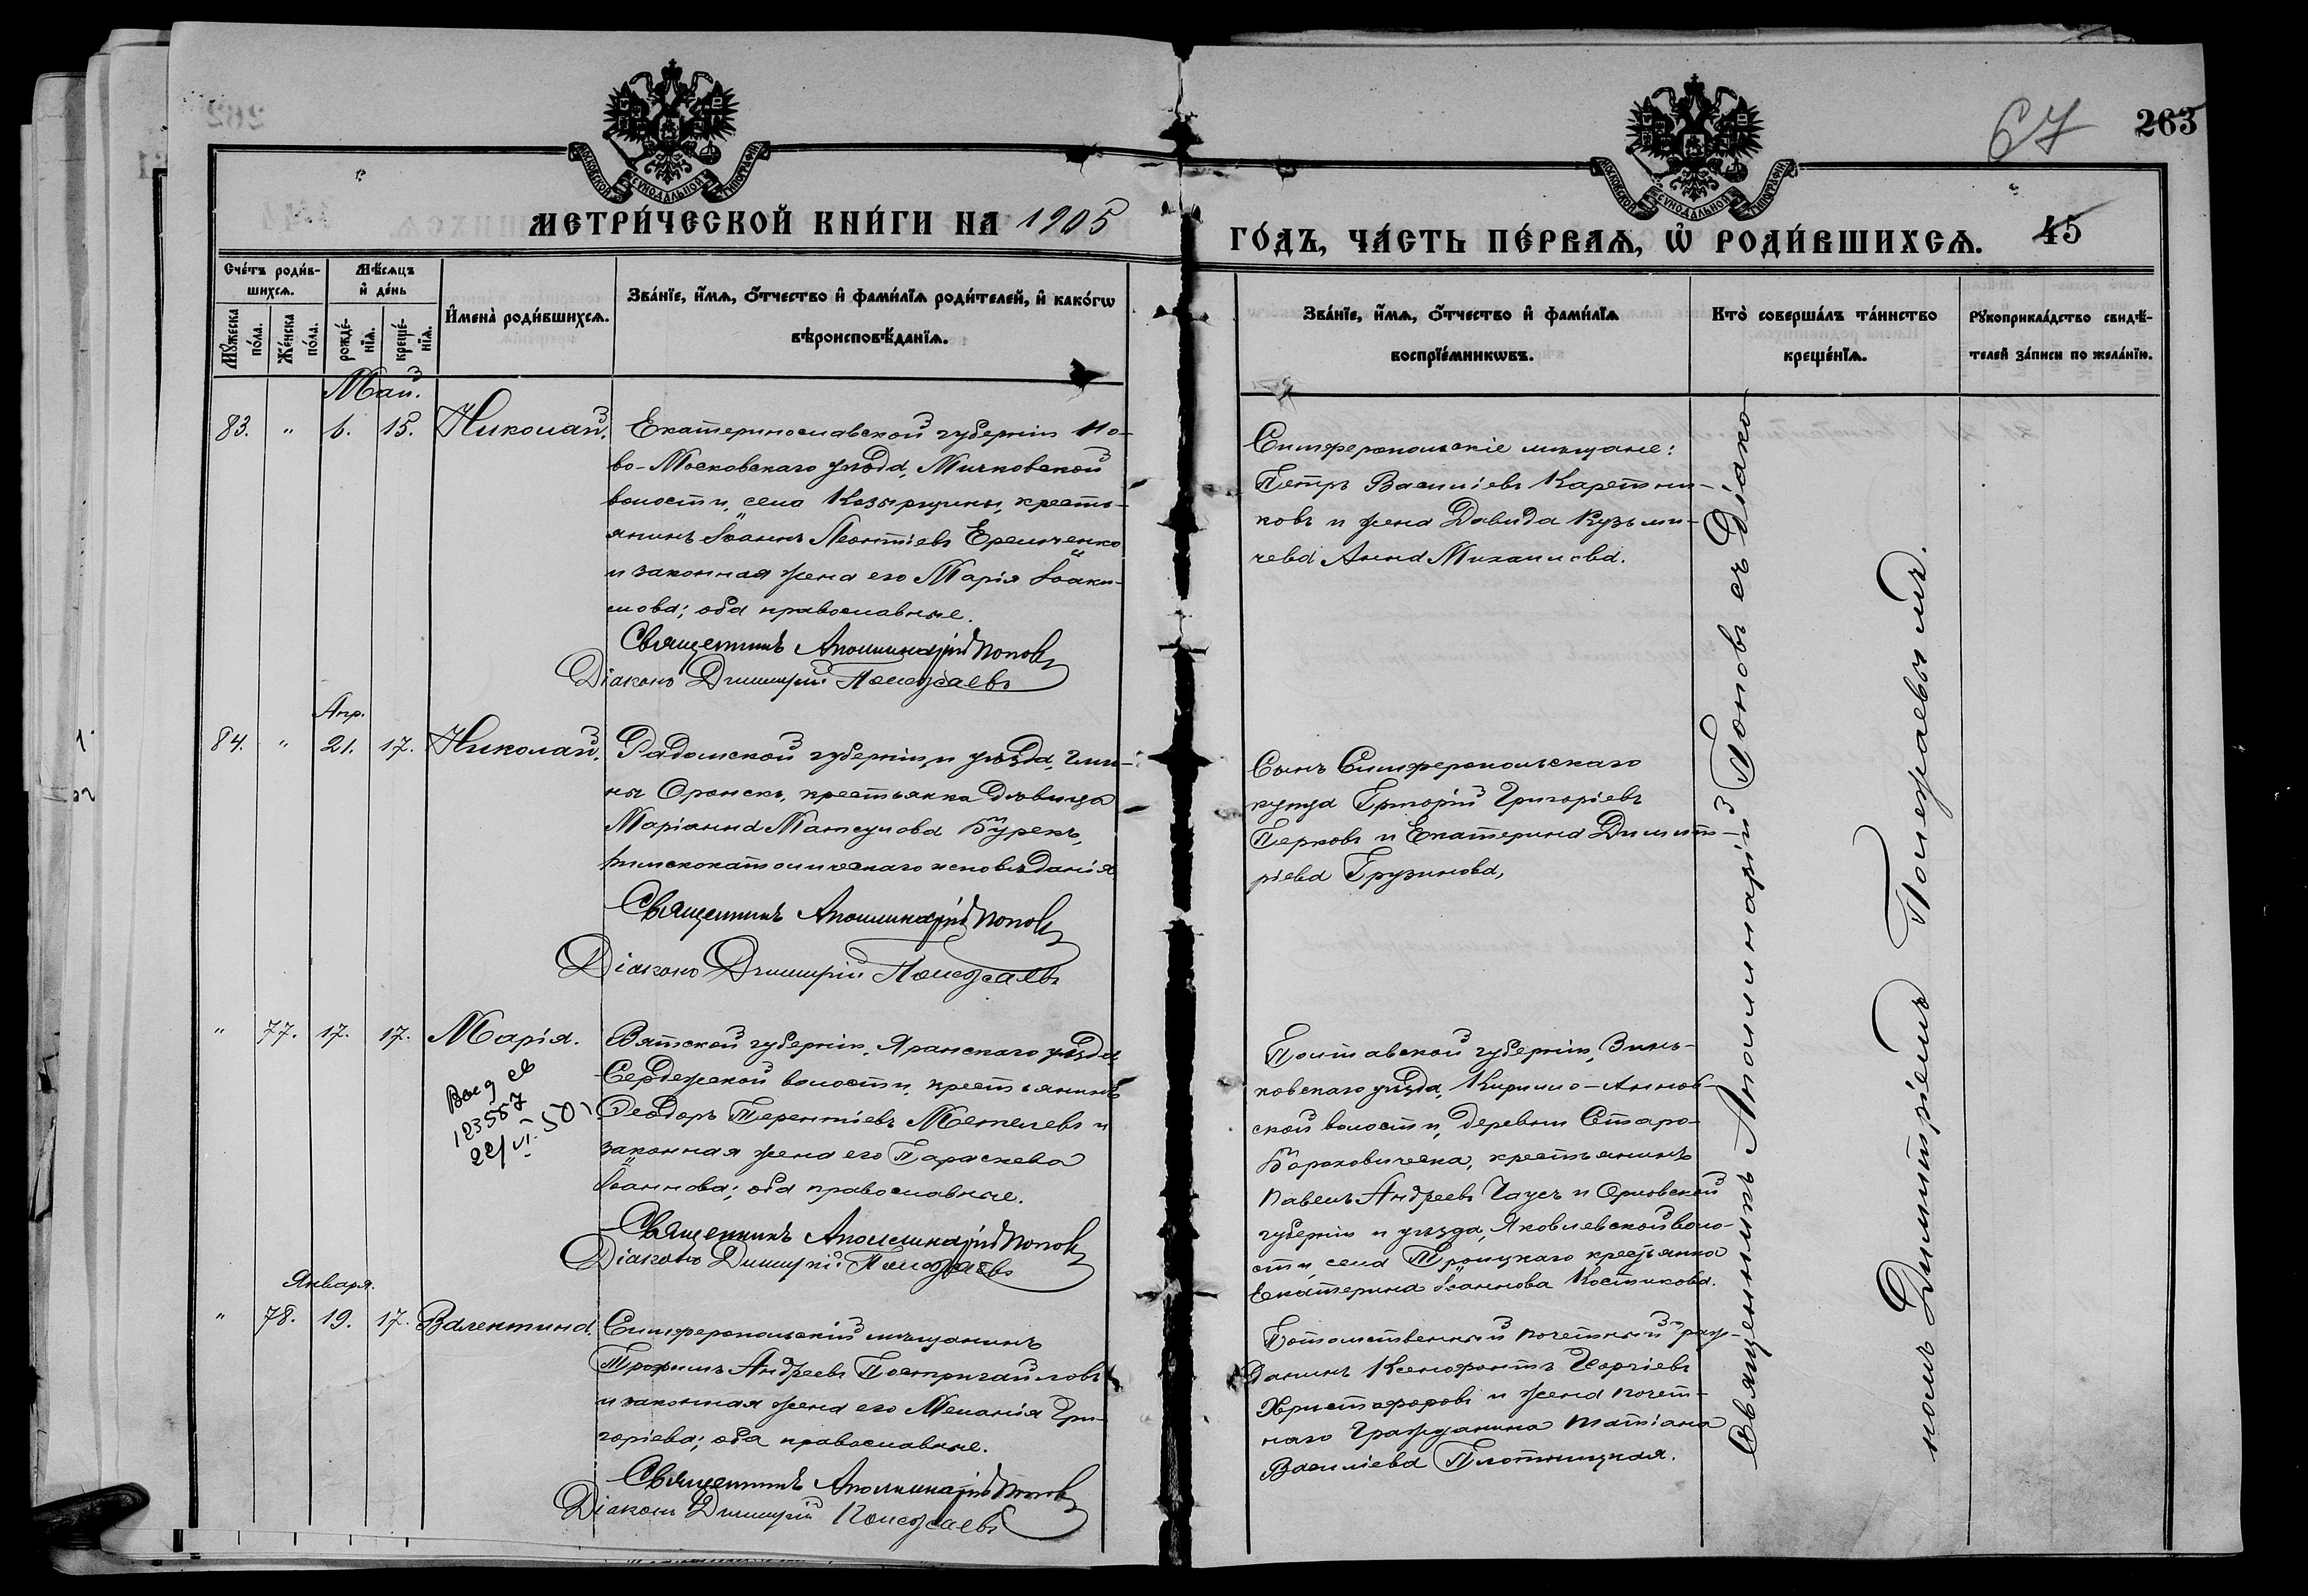 67
263
МОСКОВСКОЙ СѴНОДАЛЬНОЙ ТИПОГРАФІИ
МОСКОВСКОЙ СѴНОДАЛЬНОЙ ТИПОГРАФІИ
МЕТРИ́ЧЕСКОЙ КНИ́ГИ НА 1905
ГО́ДЪ, ЧА́СТЬ ПЕ́РВАѦ, Ѡ҆ РОДИ́ВШИХСѦ.
45
Сче́тъ роди́в-
шихсѧ.
Мѣ́сѧцъ
и҆ де́нь
Мꙋ́жеска по́ла.
Же́нска по́ла.
рожде́-
нїѧ.
креще́-
нїѧ.
И҆мена̀ роди́вшихсѧ.
Зва́нїе, и҆́мѧ, ѻ҆́тчество и҆ фами́лїѧ роди́телей, и҆ како́гѡ
вѣроисповѣ́данїѧ.
Зва́нїе, и҆́мѧ, ѻ҆́тчество и҆ фами́лїѧ
воспрїе́мникѡвъ.
Кто̀ соверша́лъ та́инство
креще́нїѧ.
Рꙋкоприкла́дство свидѣ́-
телей за́писи по жела́нїю.
Май.
83. " 6. 15. Николай.
Екатеринославской губерніи Но-
во-Московскаго уѣзда, Мичковской
волости, села Козырщины, кресть-
янинъ Іоаннъ Леонтіевъ Еремченко
и законная жена его Марія Іоаки-
мова; оба православные.
Священникъ Аполлинарій Попов
Діаконъ Димитрій Полежаевъ
Симферопольскіе мѣщане:
Петръ Василіевъ Каретни-
ковъ и жена Давида Кузьми-
чева Анна Михаилова.
Апр.
84. " 21. 17. Николай.
Радомской губерніи и уѣзда, гми-
ны Оронскъ, крестьянка дѣвица
Маріанна Матеушова Бурекъ,
римскокатолическаго исповѣданія
Священникъ Аполлинарій Попов
Діаконъ Димитрій Полежаевъ
Сынъ Симферопольскаго
купца Григорій Григоріевъ
Перковъ и Екатерина Димит-
ріева Грузинова,
" 77. 17. 17. Марія.
Выд св
123587
22/VI-50
Вятской губерніи, Яранскаго уѣзда,
Сердежской волости, крестьянинъ
Ѳеодоръ Терентіевъ Метелевъ и
законная жена его Параскева
Іоаннова; оба православные.
Священникъ Аполлинарій Попов
Діаконъ Димитрій Полежаевъ
Полтавской губерніи, Зинь-
ковскаго уѣзда, Кирилло-Аннов-
ской волости, деревни Старо-
крестьянинъ
Павелъ Андреевъ Чаусъ и Орловской
губерніи и уѣзда, Яковлевской воло-
сти, села Троицкаго крестьянка
Екатерина Іоаннова Костикова.
Января.
" 78. 19. 17. Валентина.
Симферопольскій мѣщанинъ
Трофимъ Андреевъ Постригайловъ
и законная жена его Меланія Гри-
горіева; оба православные.
Священникъ Аполлинарій Попов
Діаконъ Димитрій Полежаевъ
Потомственный почетный граж-
данинъ Ксенофонтъ Георгіевъ
Христофоровъ и жена почет-
наго гражданина Татіана
Василіева Плотницкая.
Священникъ Аполлинарій Поповъ съ Діако-
номъ Димитріемъ Полежаевымъ.